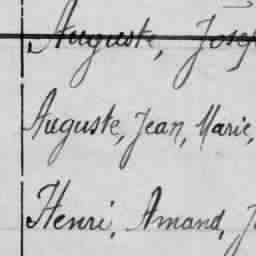 Auguste, Josep
Auguste, Jean, Marie,
Henri, Amand, J